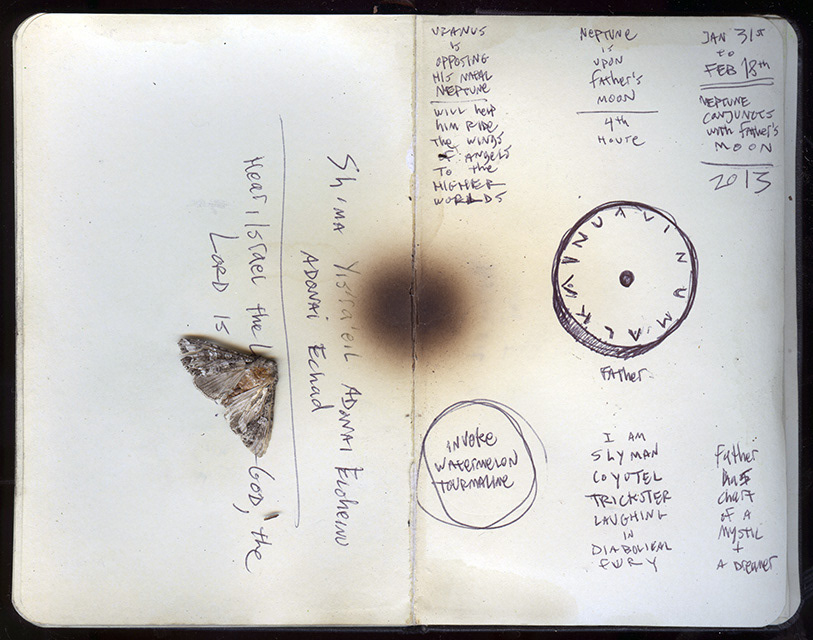 Sh'ma Yisra'eil Adonai Eloheinu
Adonai Echad
Hear, Israel the God, the
Lord is
URANUS
is
OPPOSING
HIS NATAL
NEPTUNE
WILL help
him RIDE
the WINGS
of ANGELS
TO the
HIGHER
WORLDS
NEPTUNE
is
UPON
father's
MOON
4th
House
JAN 31st
to
FEB 18th
NEPTUNE
CONJUNCTS
with father's
MOON
2013
AVINUMALKAINU
Father
INVOKE
WATERMELON
TOURMALINE
I AM
COYOTEL
TRICKSTER
LAUGHING
IN
DIABOLICAL
FURY
father
has
chart
of A
Mystic
+
A Dreamer